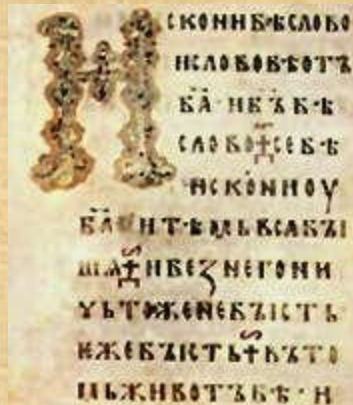 ИСКОНИБѢСЛОВО
ИСЛОВОБѢОТЪ
Б҃А·ИБ҃ЪБѢ
СЛОВО СЕБѢ
ИСКОНИОУ
Б҃А ИТѢМЬВСАБЪІ
ША ИБЕЗНЕГОНИ
ЧЬТОЖЕНЕБЪІСТЬ
ИЖЕБЪІСТЬ ВЪТО
МЬЖИВОТЪБѢ·И